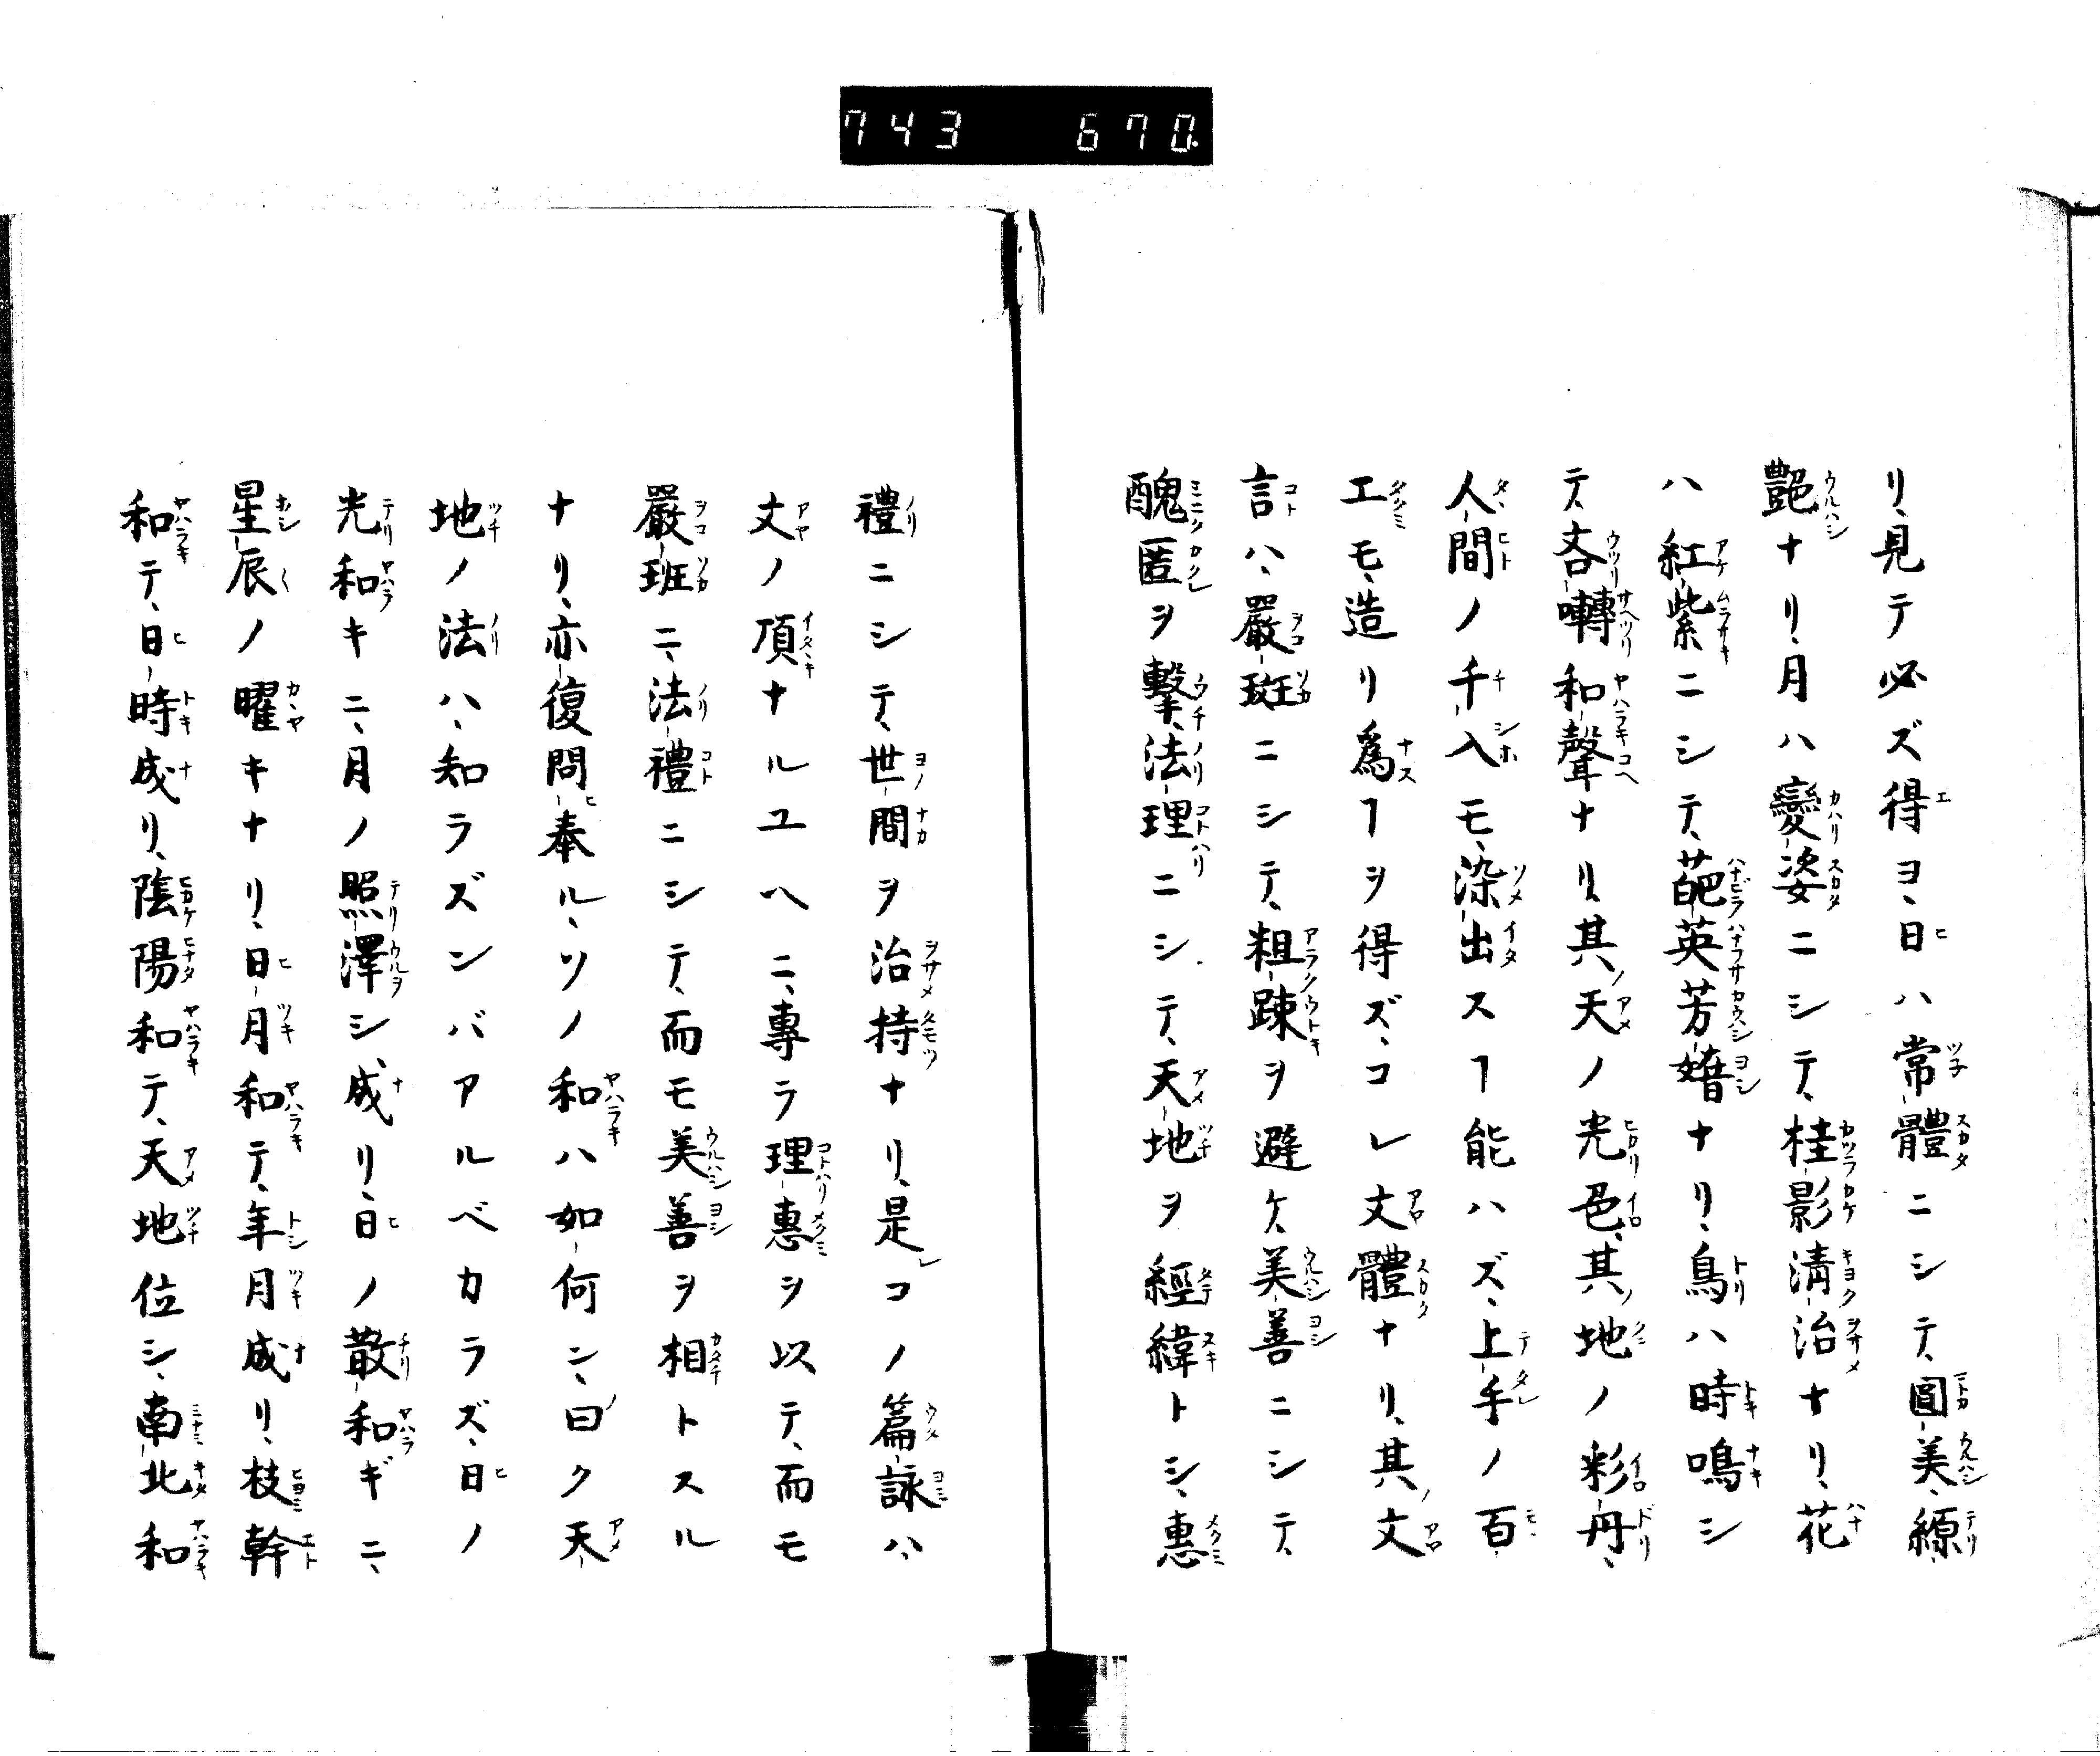 743 670.
リ、見テ必ズ得ヨ、日ハ常體ニシテ、圓美、縓
艶ナリ、月ハ變姿ニシテ、桂影清治ナリ、花
ハ紅紫ニシテ、葩英芳㜝ナリ、鳥ハ時鳴シ
テ、吝囀和聲ナリ、其天ノ光色、其地ノ彩丹、
人間ノ千入モ、染出スヿ能ハズ、上手ノ百
工モ、造リ爲ヿヲ得ズ、コレ文體ナリ、其文
言ハ、嚴斑ニシテ、粗踈ヲ避ケ、美善ニシテ、
醜匿ヲ擊、法理ニシテ、天地ヲ經緯トシ、惠
禮ニシテ、世間ヲ治持ナリ、是コノ篇詠ハ、
文ノ頂ナルユヘニ、專ラ理惠ヲ以テ、而モ
嚴班ニ、法禮ニシテ、而モ美善ヲ相トスル
ナリ、亦復問奉ル、ソノ和ハ如何ン、曰ク天
地ノ法ハ、知ラズンバアルベカラズ、日ノ
光和キニ、月ノ照澤シ、成リ、日ノ散和ギニ、
星辰ノ曜キナリ、日月和テ、年月成リ、枝幹
和テ、日時成リ、陰陽和テ、天地位シ、南北和